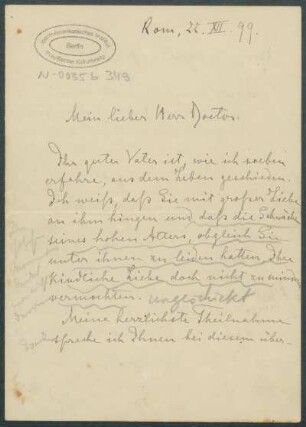 Ibero-Amerikanisches Institut
Berlin
Preußischer Kulturbesitz
N-0035 b 349
Rom, 22. XII. 99.
Mein lieber Herr Doctor.
Ihr guter Vater ist, wie ich soeben
erfahre, aus dem Leben geschieden.
Ich weiß, daß Sie mit großer Liebe
an ihm hingen und daß die Schwäche
seines hohen Alters, obgleich Sie
unter ihnen zu leiden hatten, Ihre
kindliche Liebe doch nicht zu mindern
vermochten. ungeschickt
Meine herzlichste Theilnahme
spreche ich Ihnen bei diesem über-